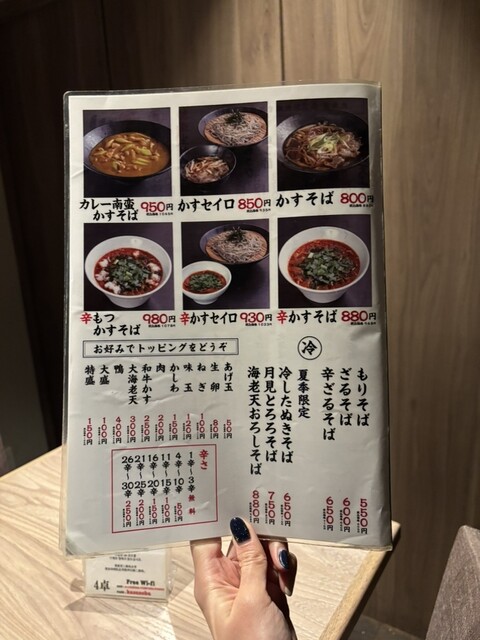 カレー南蛮
かすそば 950円
かすセイロ 850円
かすそば 800円
辛もつ
かすそば 980円
辛かすセイロ 930円
辛かすそば 880円
お好みでトッピングをどうぞ
冷
もりそば 550円
ざるそば 600円
辛ざるそば 650円
夏季限定
冷したぬきそば 650円
月見とろろそば 750円
海老天おろしそば 880円
あげ玉 50円
生卵 80円
ねぎ 100円
味玉
かしわ
肉
和牛かす
大海老天
鴨
大盛
特盛
辛さ
1辛～3辛 無料
4辛～10辛 50円
11辛～15辛 100円
16辛～20辛 150円
21辛～25辛 200円
26辛～30辛 250円
4卓
Free Wi-fi